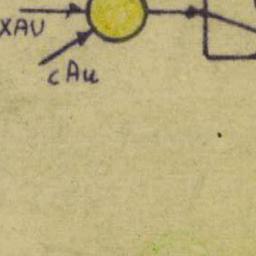 XAU
cAu